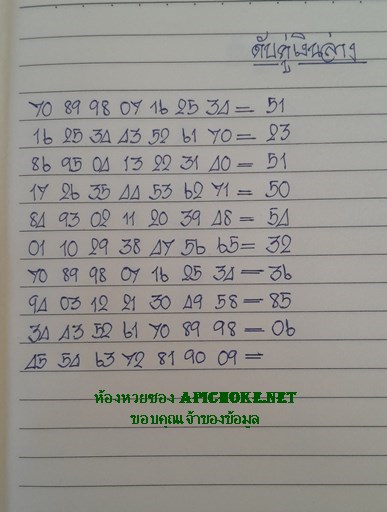 ดับคู่เงินล่าง
70 89 98 07 16 25 34 = 51
16 25 34 43 52 61 70 = 23
86 95 04 13 22 31 40 = 51
17 26 35 44 53 62 71 = 50
84 93 02 11 20 39 48 = 54
01 10 29 38 47 56 65 = 32
70 89 98 07 16 25 34 = 36
94 03 12 21 30 49 58 = 85
34 43 52 61 70 89 98 = 06
45 54 63 72 81 90 09 =
ห้องหวยซอง APICHOKE.NET
ขอบคุณเจ้าของข้อมูล